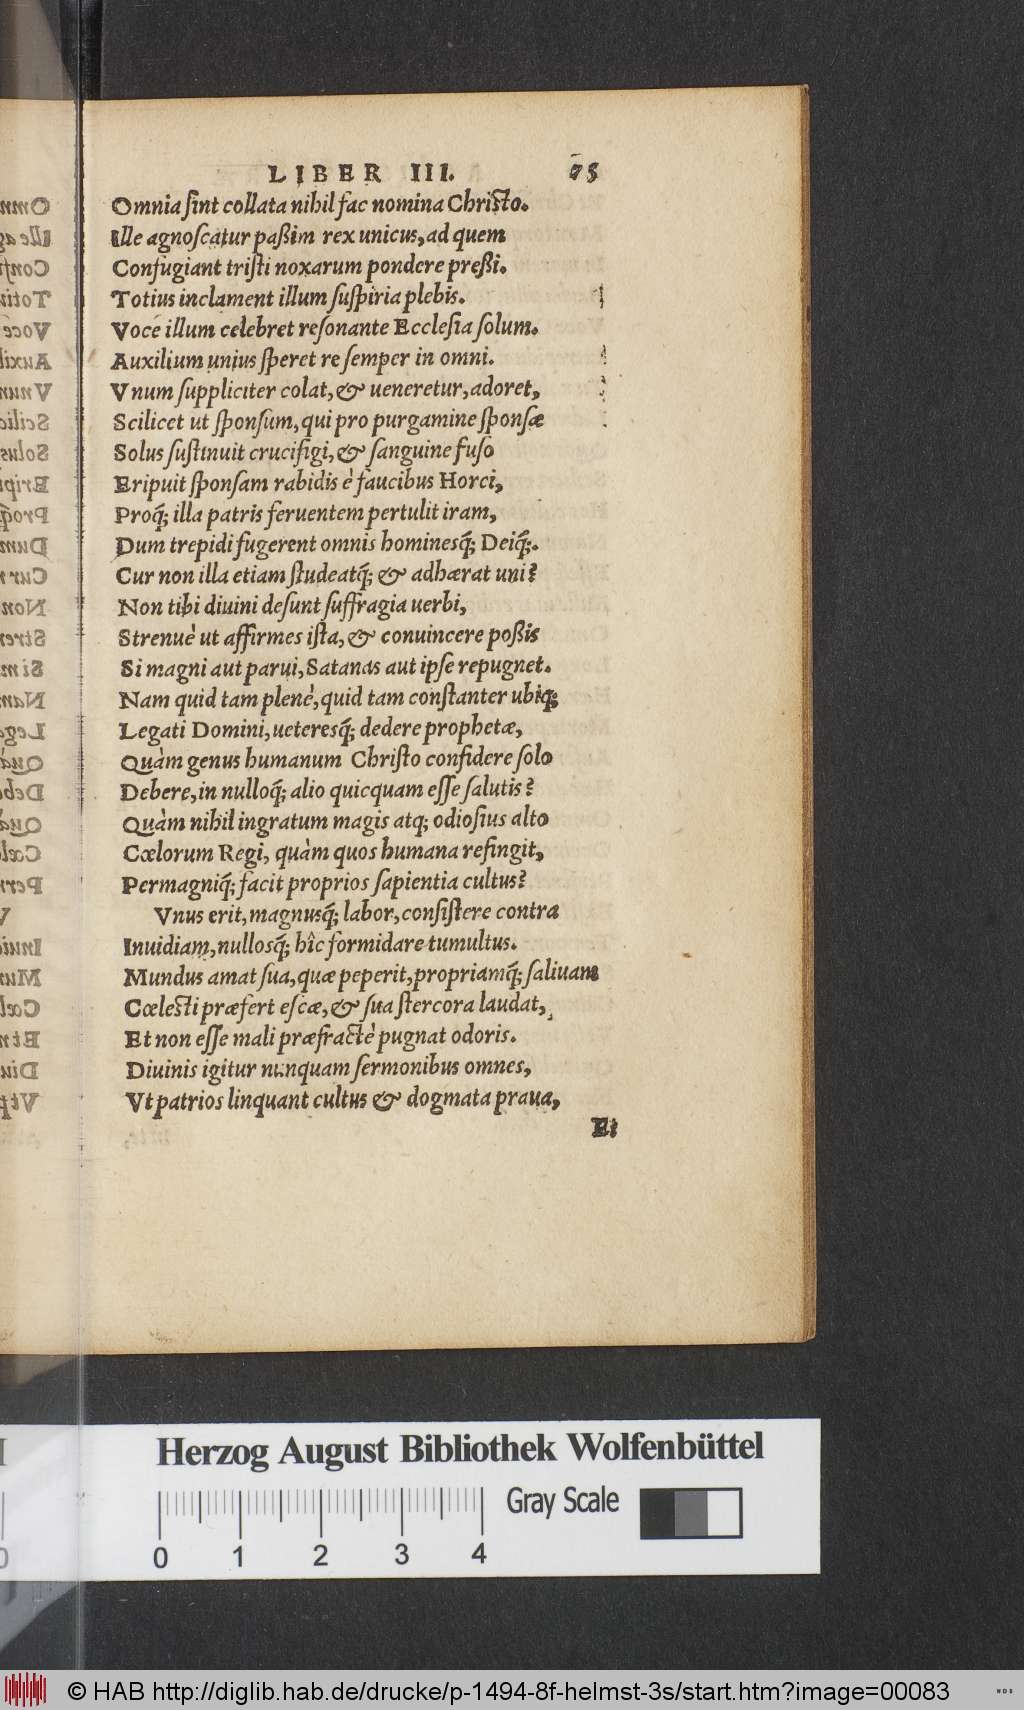 LIBER III. 75
Omnia sint collata nihil fac nomina Christo.
Ille agnoscatur paßim rex unicus, ad quem
Confugiant tristi noxarum pondere preßi.
Totius inclament illum suspiria plebis.
Voce illum celebret resonante Ecclesia solum.
Auxilium unius speret re semper in omni.
Vnum suppliciter colat, & ueneretur, adoret,
Scilicet ut sponsum, qui pro purgamine sponsæ
Solus sustinuit crucifigi, & sanguine fuso
Eripuit sponsam rabidis è faucibus Horci,
Proq́; illa patris feruentem pertulit iram,
Dum trepidi fugerent omnis hominesq́; Deiq́;.
Cur non illa etiam studeatq́; & adhærat uni?
Non tibi diuini desunt suffragia uerbi,
Strenuè ut affirmes ista, & conuincere poßis
Si magni aut parui, Satanas aut ipse repugnet.
Nam quid tam plenè, quid tam constanter ubiq;
Legati Domini, ueteresq́; dedere prophetæ,
Quàm genus humanum Christo confidere solo
Debere, in nulloq́; alio quicquam esse salutis?
Quàm nihil ingratum magis atq; odiosius alto
Cœlorum Regi, quàm quos humana refingit,
Permagniq́; facit proprios sapientia cultus?
Vnus erit, magnusq́; labor, consistere contra
Inuidiam, nullosq́; hîc formidare tumultus.
Mundus amat sua, quæ peperit, propriamq́; saliuam
Cœlesti præfert escæ, & sua stercora laudat,
Et non esse mali præfractè pugnat odoris.
Diuinis igitur nunquam sermonibus omnes,
Vt patrios linquant cultus & dogmata praua,
Et
Herzog August Bibliothek Wolfenbüttel
Gray Scale
0 1 2 3 4
© HAB http://diglib.hab.de/drucke/p-1494-8f-helmst-3s/start.htm?image=00083